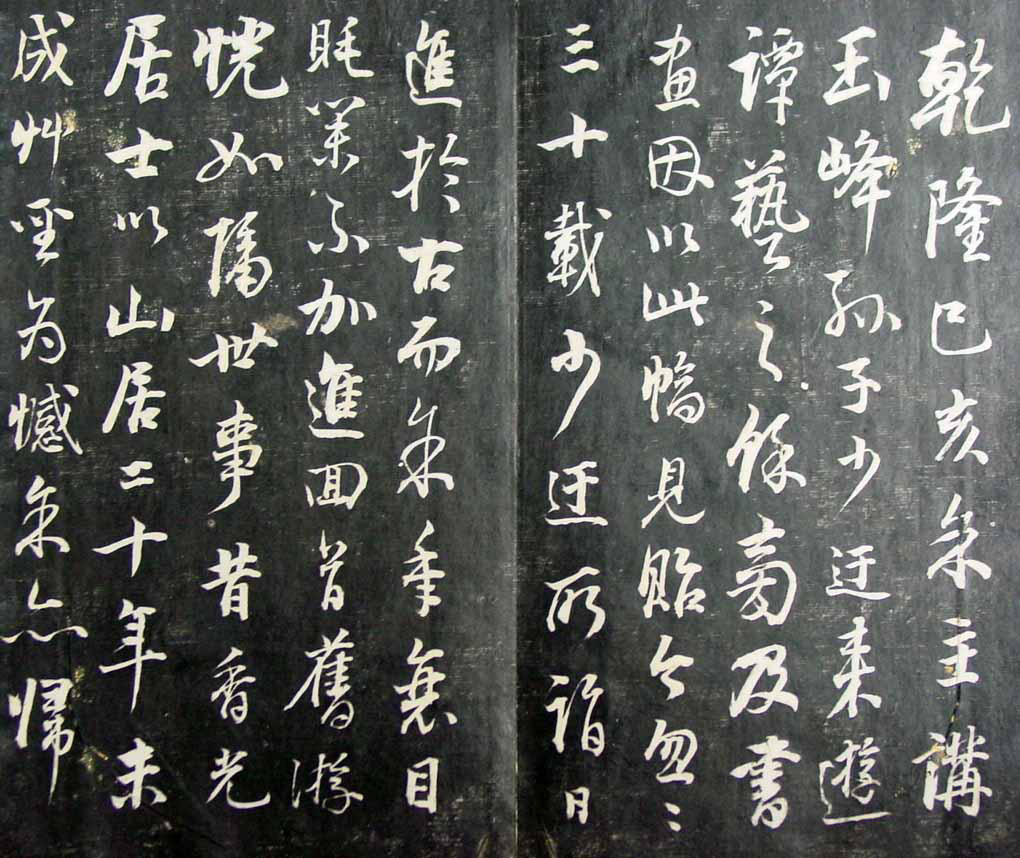 乾隆己亥余主講
玉峰孫子少迂来遊
譚藝之餘商及書
畫因以此幅見貽今忽〻
三十載少迂所詣日
進於古而余年衰目
眊業不加進回首舊游
恍如隔世事昔香光
居士以山居二十年未
成草聖為憾余亦歸